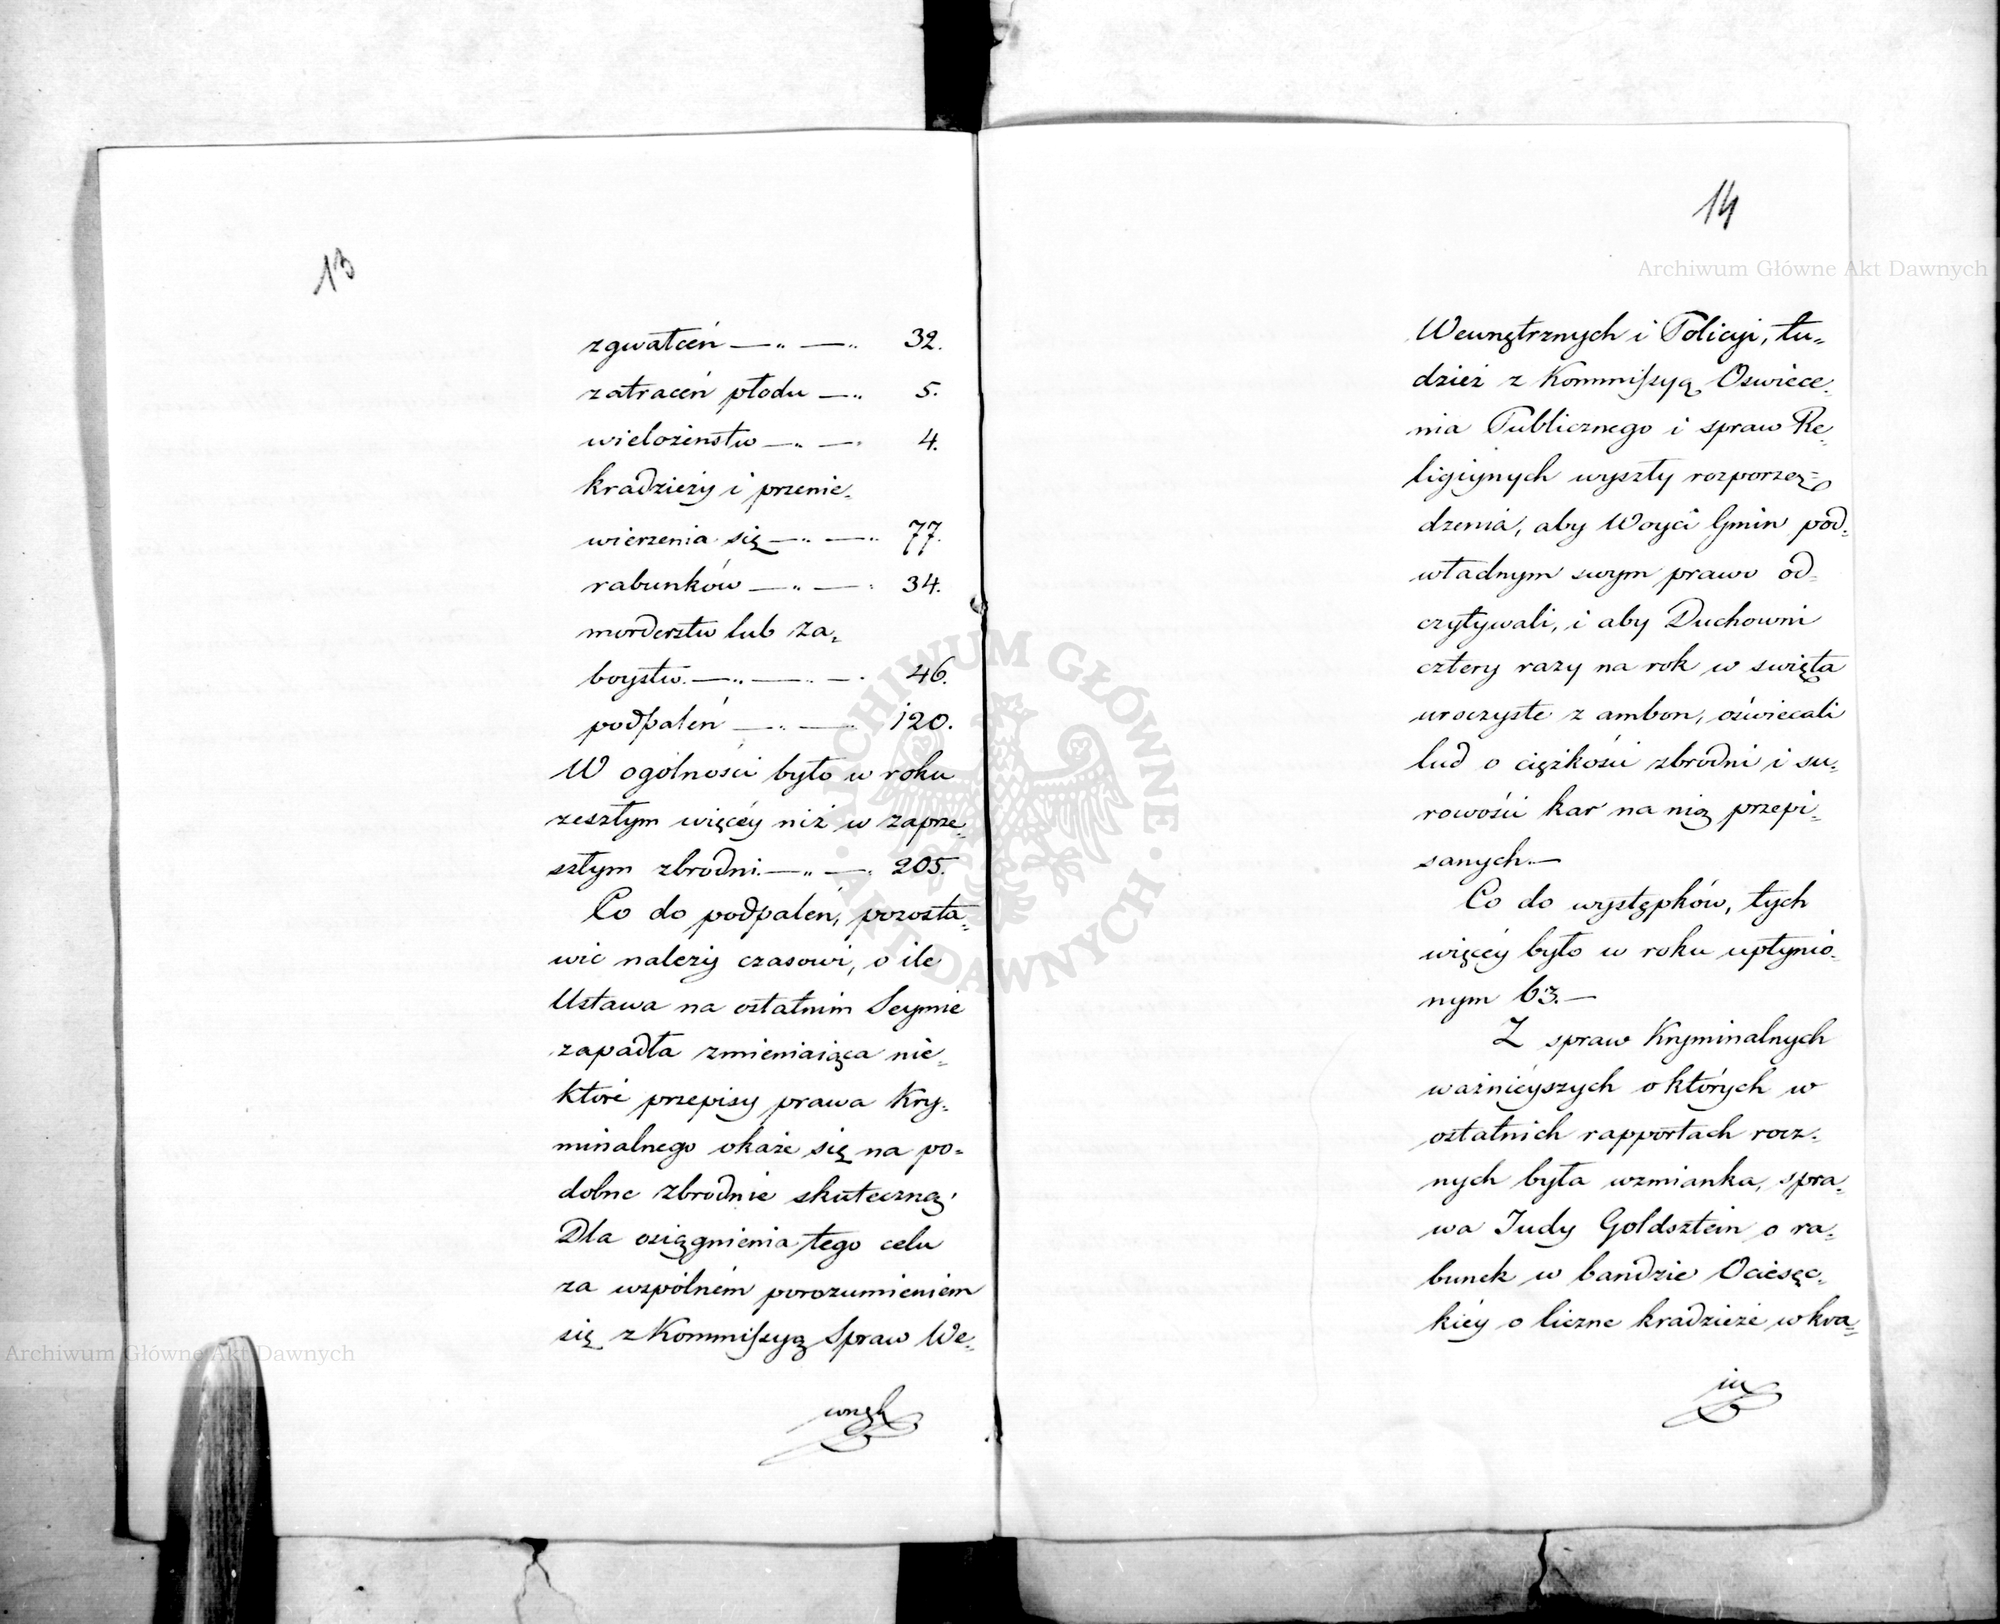 13
zgwałceń —„ —„ 32.
zatraceń płodu —„ 5.
wielożeństw —„ — 4.
kradzieży i przenie„
wierzenia się —„ —„ 77.
rabunków —„ — 34.
morderstw lub za„
boystw. —„ — — 46.
podpaleń —„ — 120.
W ogólności było w roku
zeszłym więcéy niż w zaprze„
szłym zbrodni. —„ — 205.
Co do podpaleń, pozosta„
wić należy czasowi, o ile
Ustawa na ostatnim Seymie
zapadła zmieniaiąca nie„
które przepisy prawa Kry„
minalnego okaże się na po„
dobne zbrodnie skuteczną.
Dla osiągnienia tego celu
za wspólném porozumieniem
się z Kommissyą Spraw We„
wnęt
14
Wewnętrznych i Policyi, tu„
dzież z Kommissyą Oswiece„
nia Publicznego i spraw Re„
ligiynych wyszły rozporzą„
dzenia, aby Woyci Gmin pod„
władnym swym prawo od„
czytywali, i aby Duchowni
cztery razy na rok w swięta
uroczyste z ambon, oświecali
lud o ciężkości zbrodni i su„
rowości kar na nią przepi„
sanych.—
Co do występków, tych
więcéy było w roku upłynio„
nym 63.—
Z spraw Kryminalnych
ważnieyszych o których w
ostatnich rapportach rocz„
nych była wzmianka, spra„
wa Judy Goldsztein o ra„
bunek w bandzie Ociesęc„
kiéy o liczne kradzieże w kra„
iu
Archiwum Główne Akt Dawnych
Archiwum Główne Akt Dawnych
ARCHIWUM GŁÓWNE · AKT DAWNYCH ·